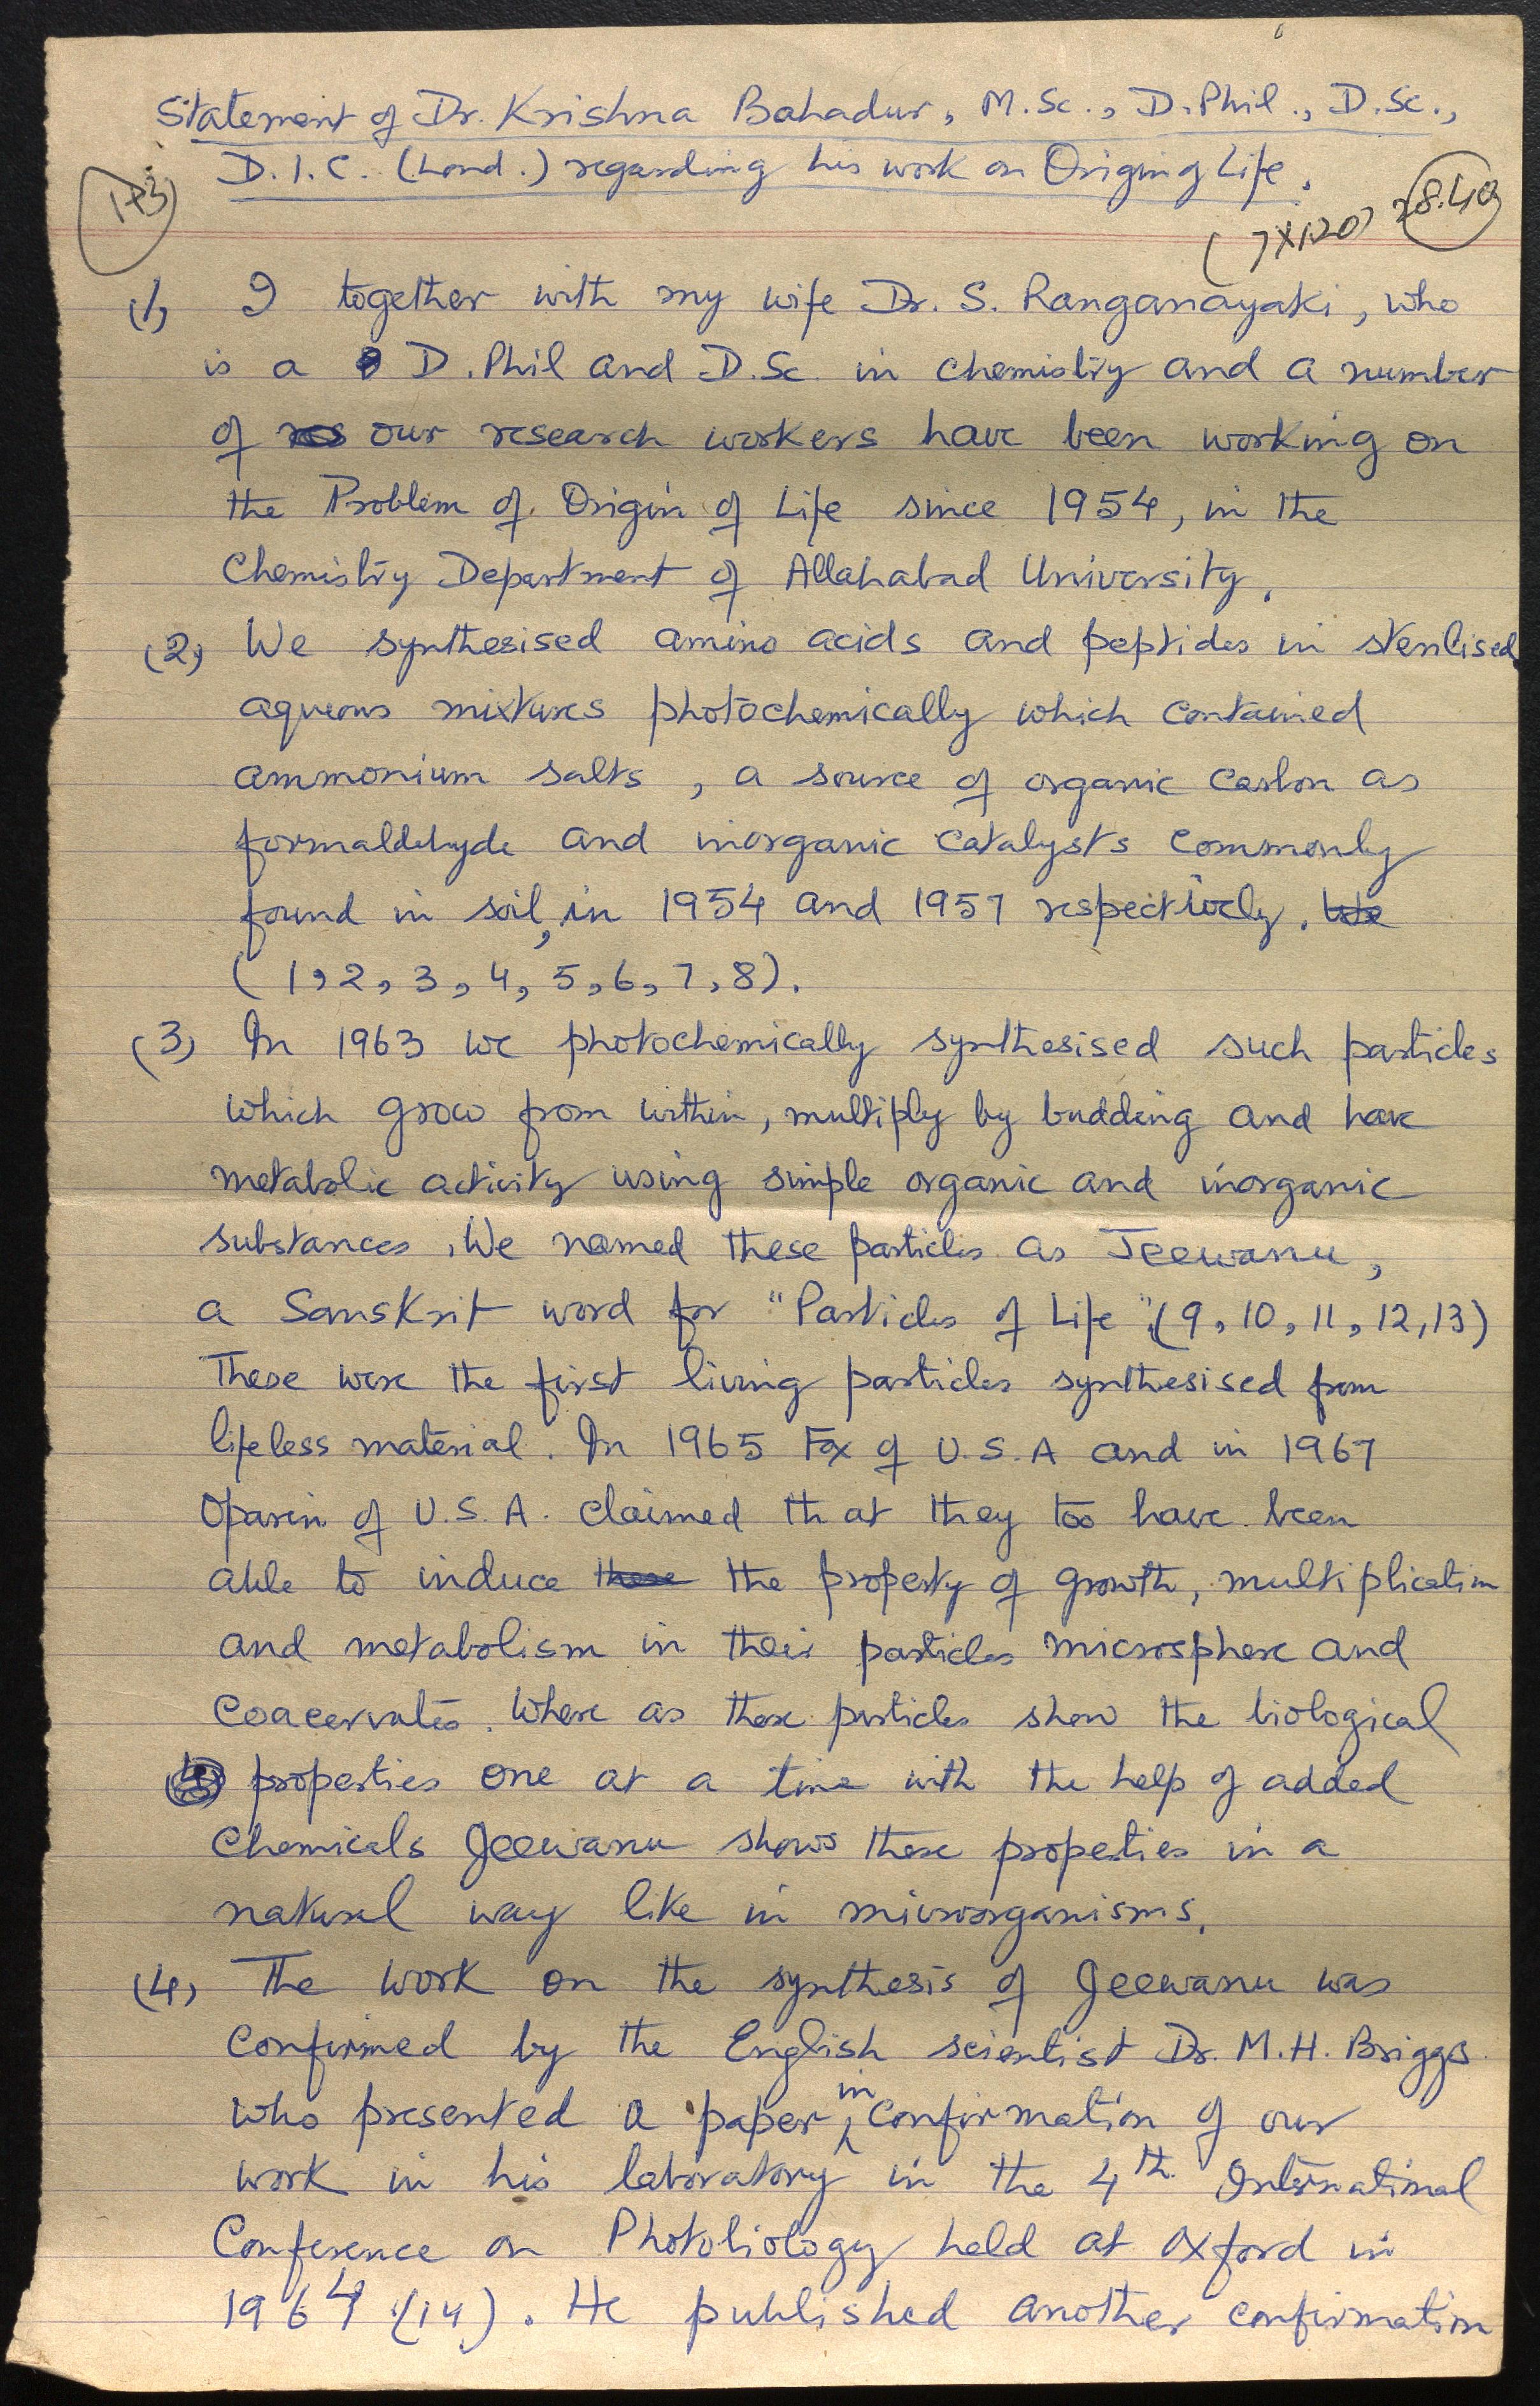 Statement of Dr. Krishna Bahadur, M.Sc., D.Phil., D.Sc.,
D.I.C. (Lond.) regarding his work on Origin of Life.
173
(7X120) 28.40
(1) I together with my wife Dr. S. Ranganayaki, who
is a D.Phil and D.Sc. in chemistry and a number
of our research workers have been working on
the Problem of Origin of Life since 1954, in the
Chemistry Department of Allahabad University.
(2) We synthesised amino acids and peptides in sterilised
aqueous mixtures photochemically which contained
ammonium salts, a source of organic carbon as
formaldehyde and inorganic catalysts commonly
found in soil, in 1954 and 1957 respectively. We
(1, 2, 3, 4, 5, 6, 7, 8).
(3) In 1963 we photochemically synthesised such particles
which grow from within, multiply by budding and have
metabolic activity using simple organic and inorganic
substances. We named these particles as Jeewanu,
a Sanskrit word for "Particles of Life". (9, 10, 11, 12, 13)
These were the first living particles synthesised from
lifeless material. In 1965 Fox of U.S.A and in 1967
Oparin of U.S.A. claimed that they too have been
able to induce these the property of growth, multiplication
and metabolism in their particles microsphere and
coacervates. Where as these particles show the biological
properties one at a time with the help of added
chemicals Jeewanu shows these propeties in a
natural way like in microorganisms.
(4) The work on the synthesis of Jeewanu was
confirmed by the English scientist Dr. M.H. Briggs
who presented a paper in confirmation of our
work in his laboratory in the 4th International
Conference on Photobiology held at Oxford in
1964 (14). He published another confirmation